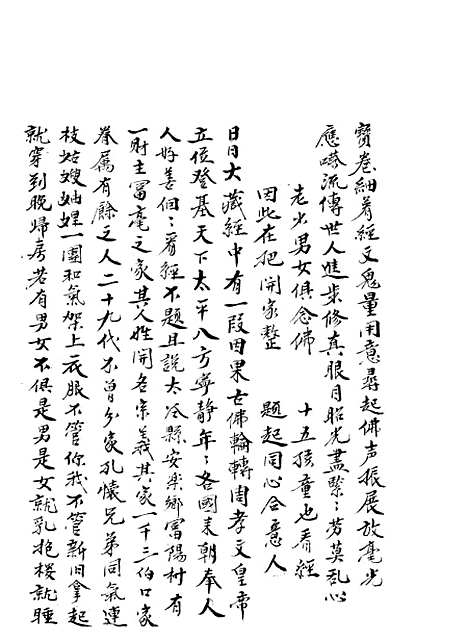 寶卷細看經文鬼量用意尋起佛声振展放毫光
應𠹌流傳世人進步修真眼目昭光盡緊〻劳莫乱心
老少男女俱念佛　十五孩童也看經
因此在把開家整　題起同心合意人
日日大藏經中有一段因果古佛輪轉周孝文皇帝
立位登基天下太平八方寧靜年〻各國来朝奉人
人好善個〻看經不題且說太冷縣安樂鄉富陽村有
一財主冨毫之家其人姓開名宗義其家一千三伯口家
眷属有餘之人二十九代不曾分家孔懷兄弟同氣連
枝姑嫂妯娌一團和氣架上衣服不管你我不管新旧拿起
就穿到晚帰房若有男女不俱是男是女就乳抱楼就睡